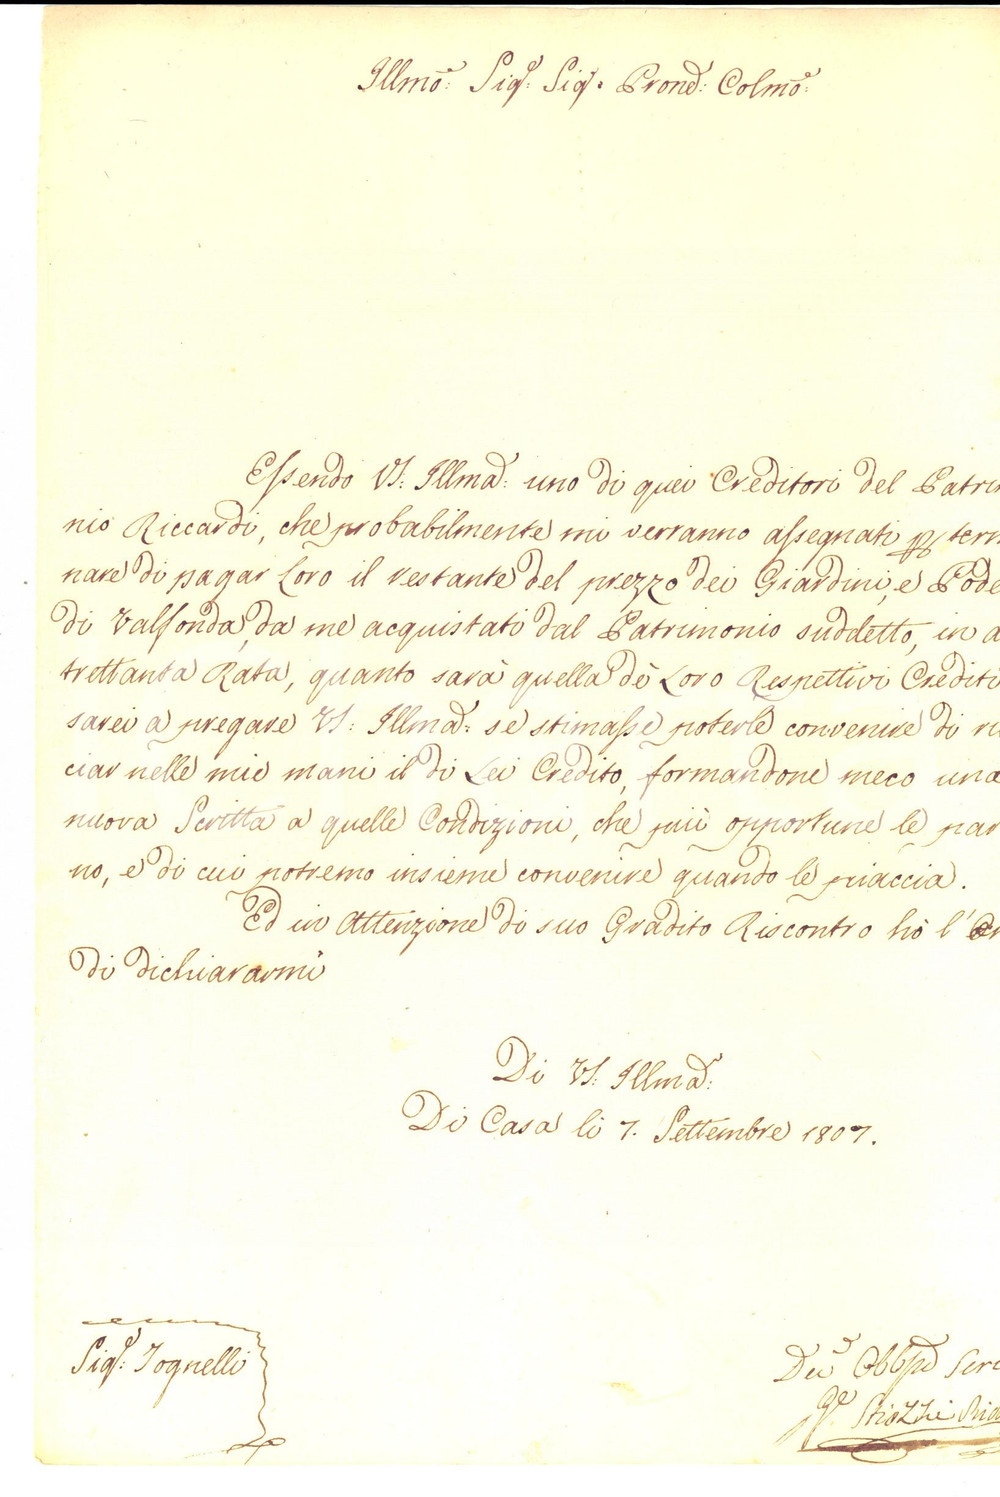 Illmo: Sigre: Sigr. Prone: Colmo:
Essendo VS: Illma: uno di quei Creditori del Patrim
nio Riccardi, che probabilmente mi verranno assegnati p term
nare di pagar Loro il restante del prezzo dei Giardini, e Pode
di Valfonda, da me acquistati dal Patrimonio suddetto, in a
trettanta Rata, quanto sarà quella dè Loro Respettivi Crediti
sarei a pregare VS: Illma: se stimasse poterle convenire di ri
ciar nelle mie mani il di Lei Credito, formandone meco una
nuova Scritta a quelle Condizioni, che più opportune le par
no, e di cui potremo insieme convenire quando le piaccia.
Ed in Attenzione di suo Gradito Riscontro hò l'On
di dichiararmi
Di VS: Illma:
Di Casa li 7. Settembre 1807.
Sigre: Tognelli
Deu Obbl Ser
Stiozzi Rid